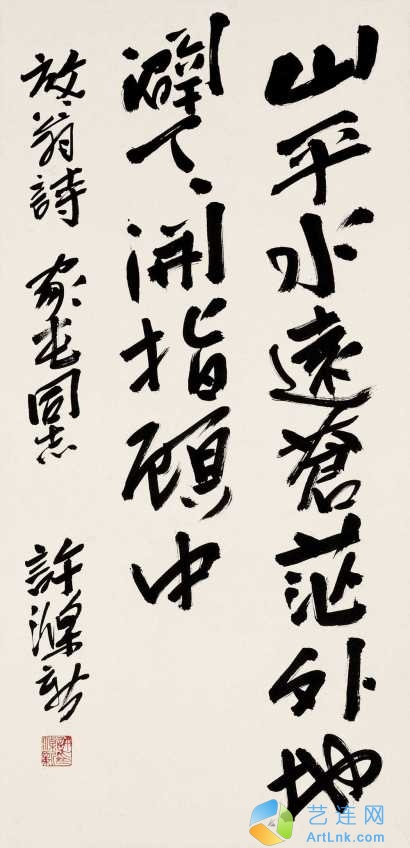 山平水遠蒼茫外地
闢天開指顧中
放翁詩 家屯同志 許滌新
艺连网
ArtLnk.com